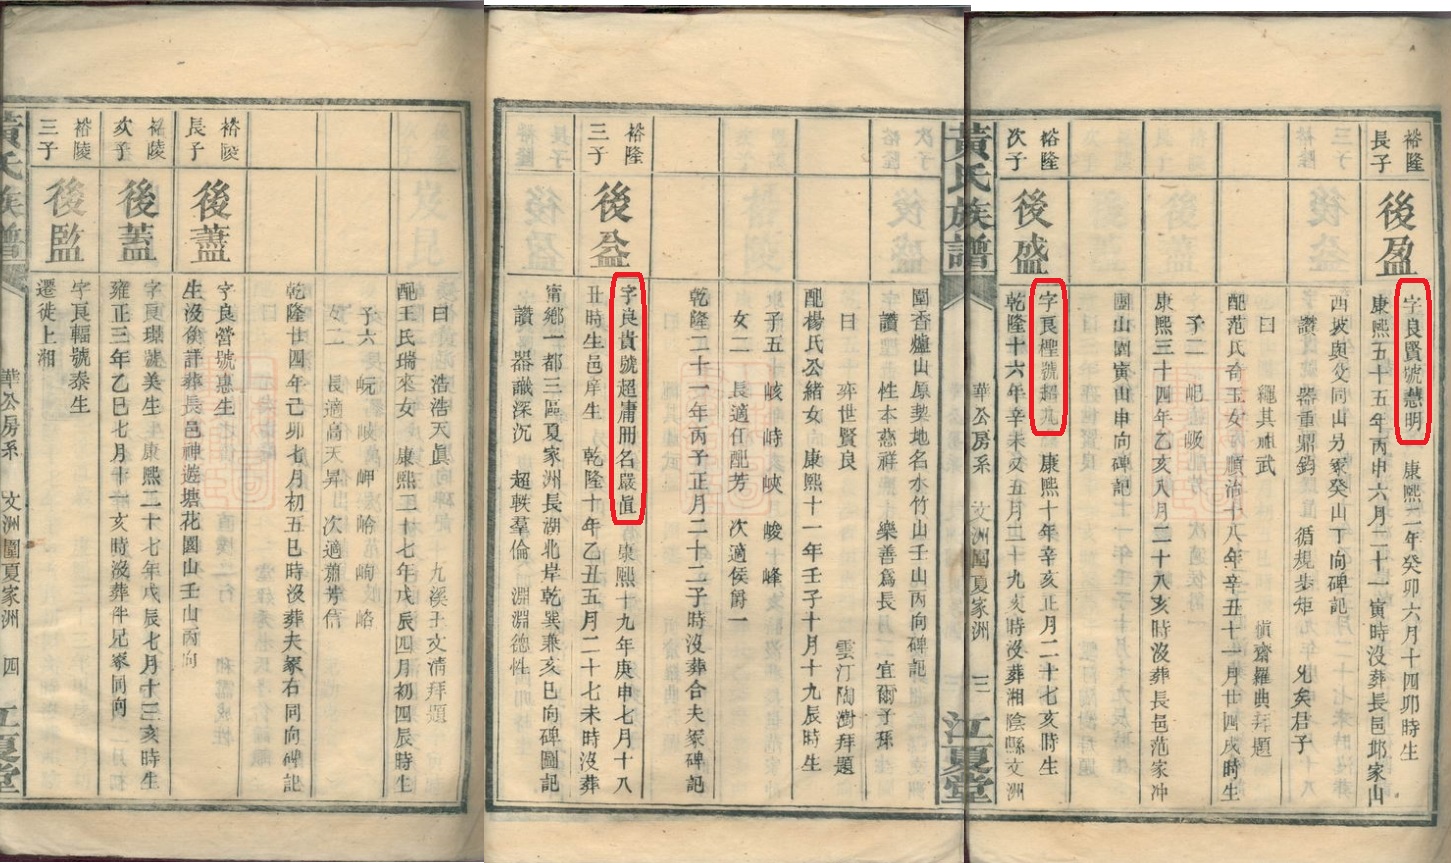 裕隆
長子
後盈
字良賢號慧明 康熙二年癸卯六月十四卯時生
康熙五十五年丙申六月二十一寅時沒葬長邑邱家山
西坡與父同山另冢癸山丁向碑記
讚 器重鼎鈞 循規步矩 允矣君子
曰 繩其祖武 慎齋羅典拜題
配范氏奇玉女 順治十八年辛丑十一月廿四戌時生
康熙三十四年乙亥八月二十八亥時沒葬長邑范家冲
園山園寅山申向碑記
子二 屺 峐
裕隆
次子
後盛
字良櫻號超凡 康熙十年辛亥正月二十七亥時生
乾隆十六年辛未又五月二十九亥時沒葬湘陰縣文洲
黃氏族譜
華公房系 文洲圍夏家洲 三
江夏堂
圍香爐山原契地名水竹山壬山丙向碑記
讚 性本慈祥 樂善爲長 宜爾子孫
曰 弈世賢良 雲汀陶澍拜題
配楊氏公緒女 康熙十一年壬子十月十九辰時生
子五 峐 峙 峽 峻 峰
女二 長適任配芳 次適侯爵一
乾隆二十一年丙子正月二十二子時沒葬合夫冢碑記
裕隆
三子
後益
字良貴號超庸冊名嚴眞 康熙十九年庚申七月十八
丑時生邑庠生 乾隆十年乙丑五月二十七未時沒葬
甯鄉一都三區夏家洲長湖北岸乾巽兼亥巳向碑圖記
讚 器識深沉 超軼羣倫 淵淵德性
曰 浩浩天眞 九溪王文清拜題
配王氏瑞來女 康熙二十七年戊辰四月初四辰時生
子六 岏 岐 岬 峆 峋 峈
女二 長適高天昇 次適蕭芳信
乾隆廿四年己卯七月初五巳時沒葬夫冢右同向碑記
裕陵
長子
後藎
字良營號惠生
生沒俟詳葬長邑神遊塘花園山壬山丙向
裕陵
次子
後蓋
字良璵號美生 康熙二十七年戊辰七月十三亥時生
雍正三年乙巳七月十一亥時沒葬伴兄冢同向
裕陵
三子
後監
字良輻號泰生
遷徙上湘
黃氏族譜
華公房系 文洲圍夏家洲 四
江夏堂